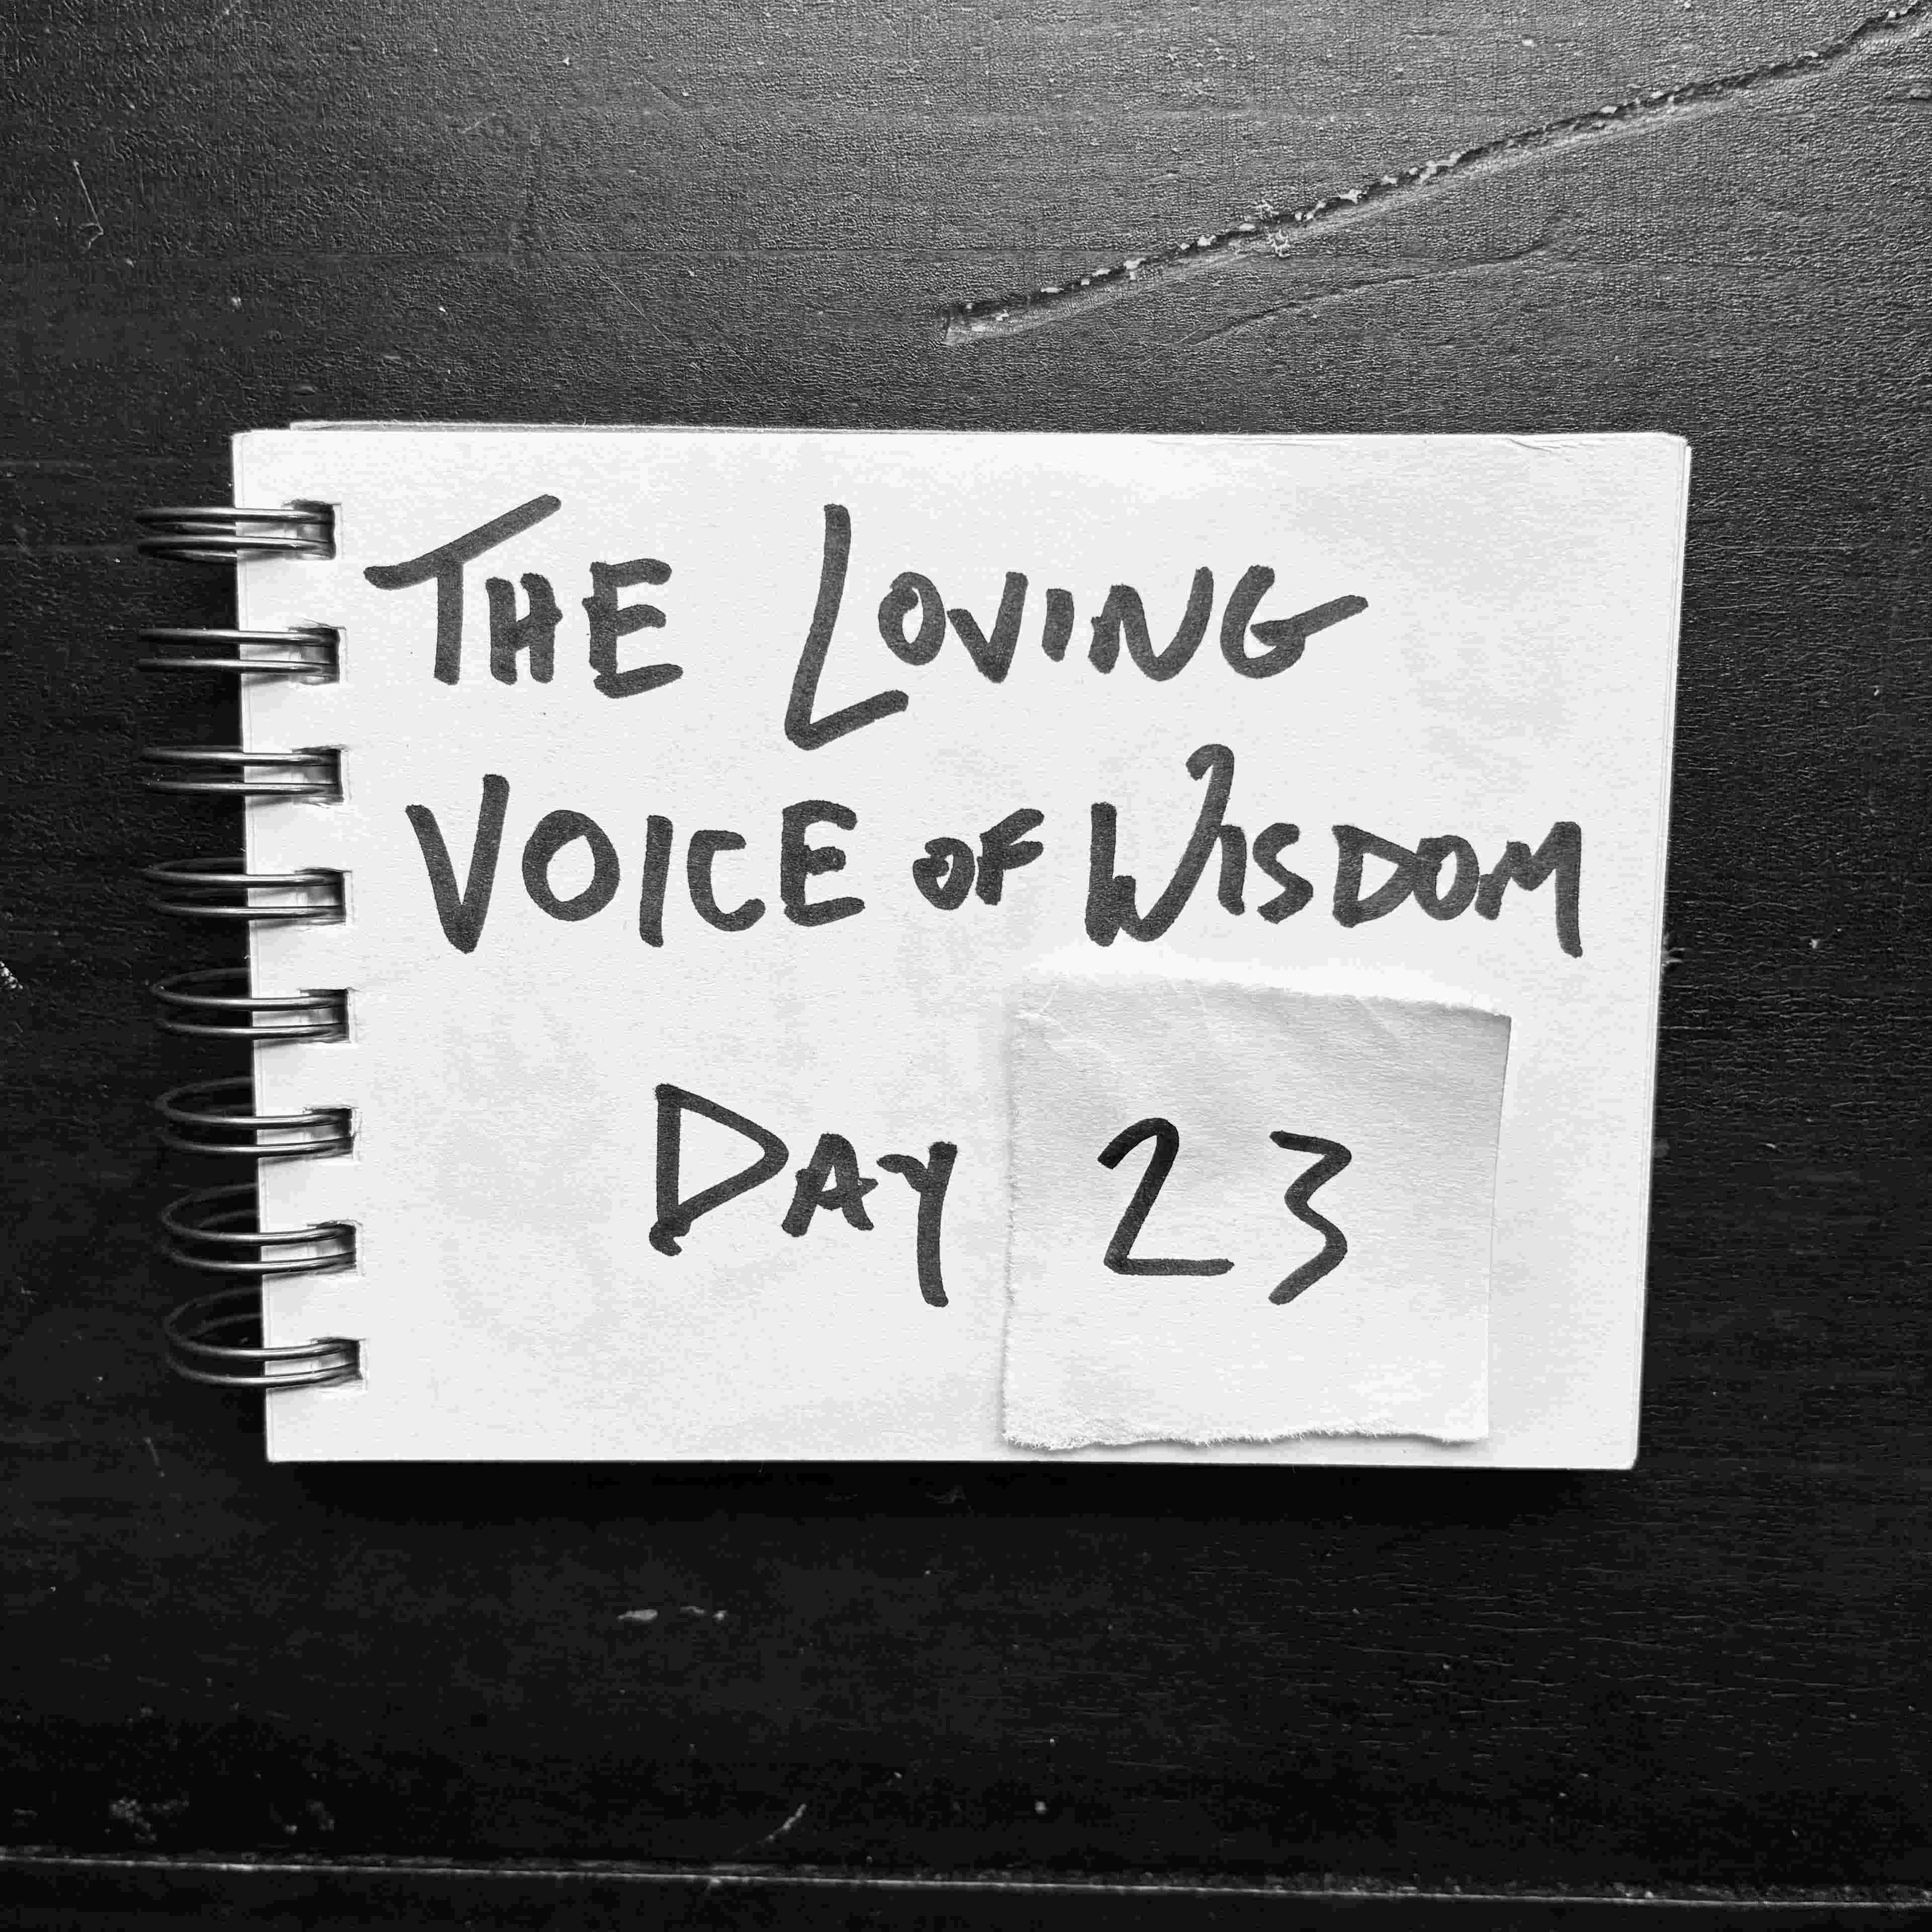 THE LOVING
VOICE OF WISDOM
DAY 23